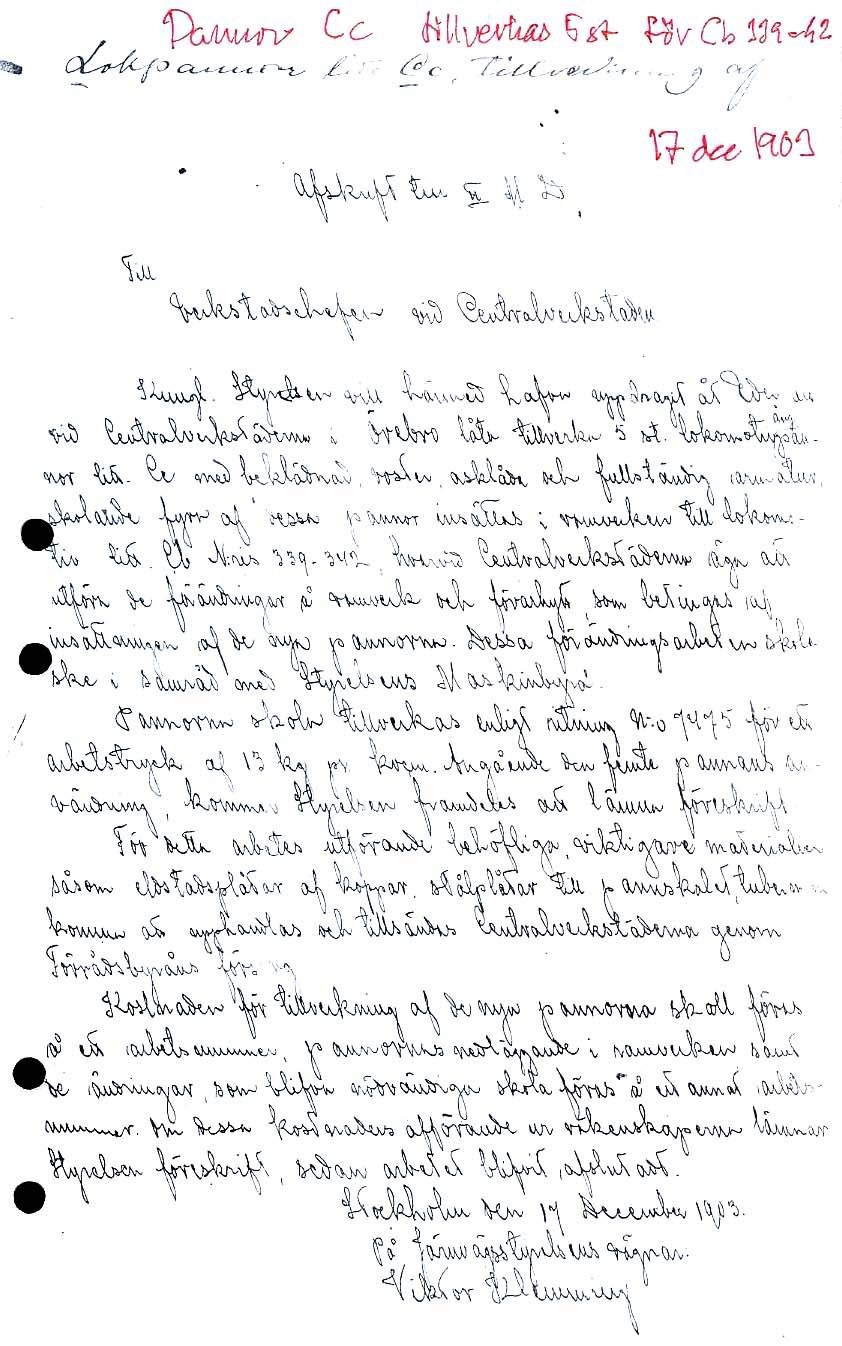 Pannor Cc tillverkas 5 st för Cb 339-42
Lokpannor litt Cc, Tillverkning af
17 dec 1903
Afskrift till II M D.
Till
Verkstadschefen vid Centralverkstaden
Kungl. Styrelsen vill härmed hafva uppdragit åt Eder att
vid Centralverkstäderna i Örebro låta tillverka 5 st. lokomotivångpan-
nor litt. Cc med beklädnad, roster, asklåda och fullständig armatur,
skolande fyra af dessa pannor insättas i ramverken till lokomo-
tiv litt. Cb N:ris 339-342, hvarvid Centralverkstäderna äga att
utföra de förändringar å ramverk och förarhytt, som betingas af
insättningen af de nya pannorna. Dessa förändringsarbeten skola
ske i samråd med Styrelsens Maskinbyrå.
Pannorna skola tillverkas enligt ritning N:o 7475 för ett
arbetstryck af 13 kg pr kvcm. Angående den femte pannans an-
vändning, kommer Styrelsen framdeles att lämna föreskrift
För detta arbetes utförande behöfliga, viktigare materialier
såsom eldstadsplåtar af koppar, stålplåtar till pannskalet, tuber
komma att upphandlas och tillsändas Centralverkstäderna genom
Förrådsbyråns försorg
Kostnaden för tillverkning af de nya pannorna skall föras
å ett arbetsnummer, pannornas nedläggande i ramverken samt
de ändringar, som blifva nödvändiga skola föras å ett annat arbets-
nummer. Om dessa kostnaders afförande ur räkenskaperna lämnar
Styrelsen föreskrift, sedan arbetet blifvit afslutadt.
Stockholm den 17 December 1903.
På Järnvägsstyrelsens vägnar:
Viktor Klemming